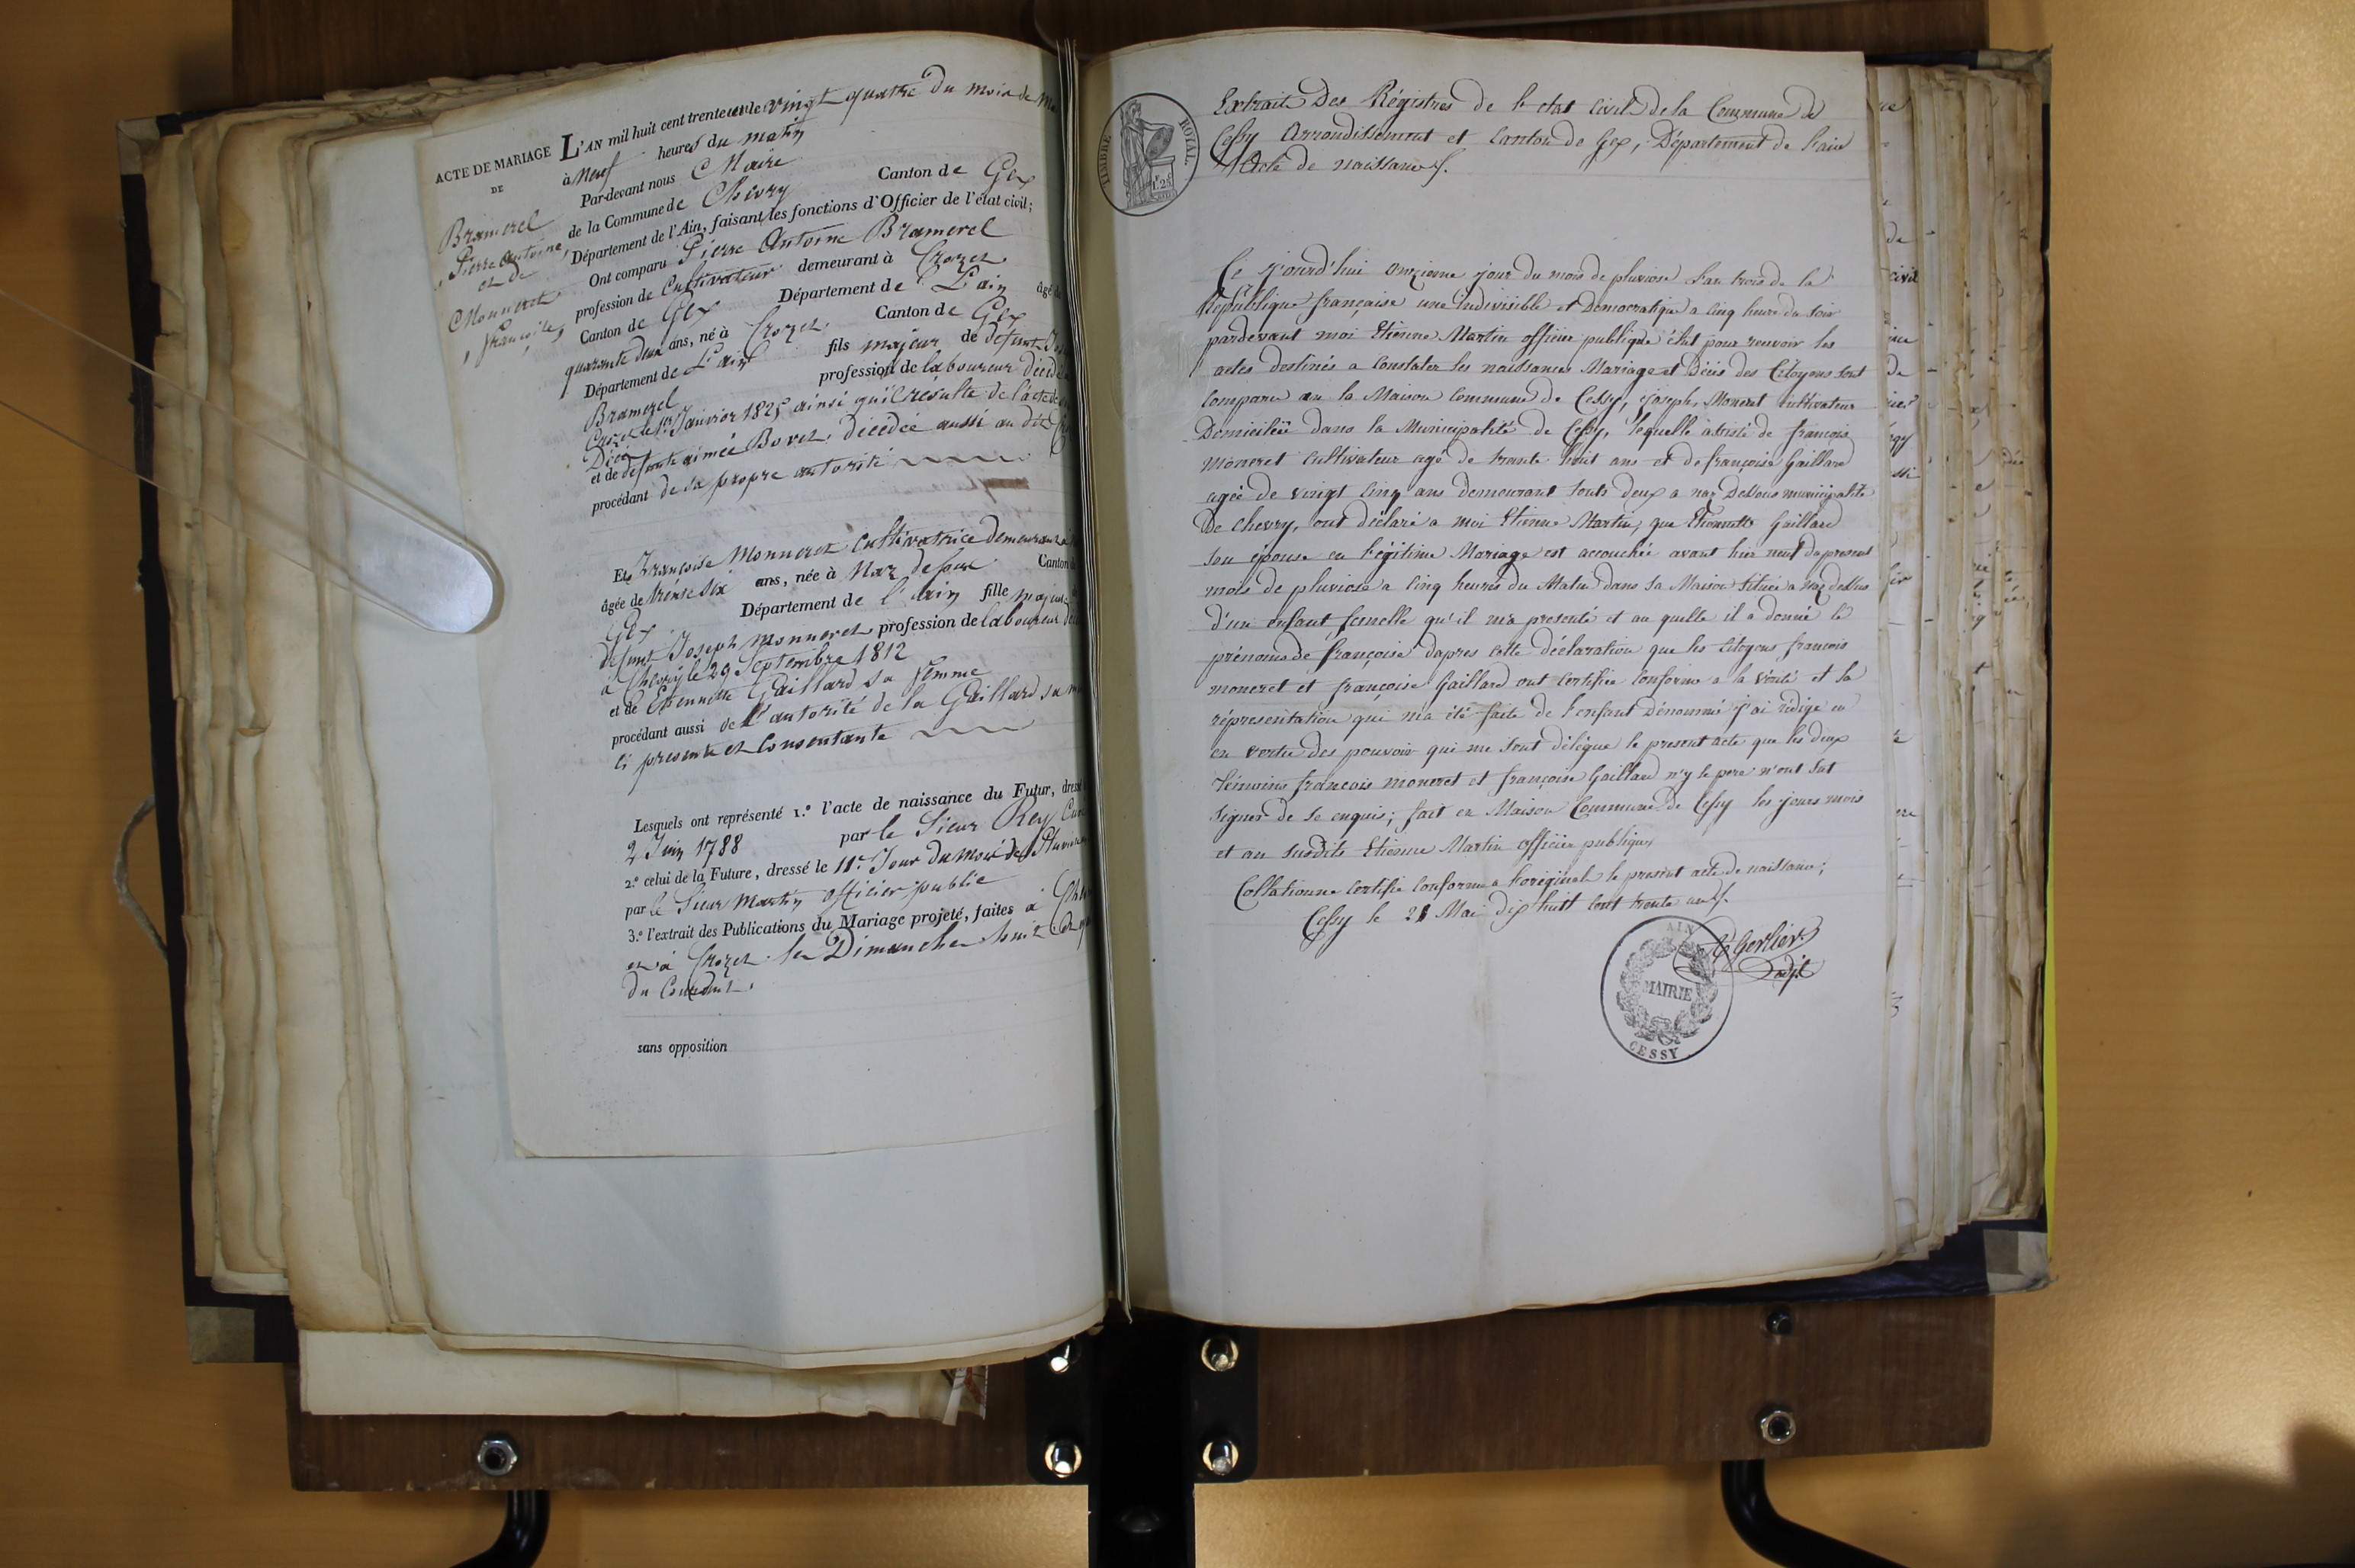 ACTE DE MARIAGE
DE
Bramerel
Pierre Antoine,
et de
Monneret
françoise,
L'AN mil huit cent trente un le vingt quatre du mois de
à Neuf heures du matin
Par-devant nous Maire
de la Commune de Chevry Canton de Gex
Département de l'Ain, faisant les fonctions d'Officier de l'état civil;
Ont comparu Pierre Antoine Bramerel
profession de Cultivateur demeurant à Crozet
Canton de Gex Département de L'ain âgé de
quarante deux ans, né à Crozet. Canton de Gex
Département de L'ain fils majeur de defunt
Bramerel profession de laboureur décédé
Crozet le 1er Janvier 1825 ainsi qu'il résulte de l'acte de
Décès
et de defunte aimée Bovet, décédée aussi au dit
procédant de sa propre autorité
Et Françoise Monneret Cultivatrice demeurant à
âgée de trente six ans, née à Naz dessus Canton
Gex Département de l'ain fille majeure
defunt Joseph Monneret profession de laboureur
à Chevry le 29 Septembre 1812
et de Etiennette Gaillard sa femme
procédant aussi de l'autorité de la Gaillard sa
ci presente et Consentante
Lesquels ont représenté 1.º l'acte de naissance du Futur, dressé
2 Juin 1788 par le Sieur Rey Curé
2.º celui de la Future, dressé le 11e Jour du Mois de
par le Sieur Martin officier public
3.º l'extrait des Publications du Mariage projeté, faites à
et à Crozet les Dimanches huit et
du Courant.
sans opposition
TIMBRE ROYAL
1f 25
Extrait Des Régistres de l'etat civil de la Commune de
Cessy Arrondissement et Canton de Gex, Département de l'ain
Acte de naissance
Ce j'ourd'hui onzieme jour du mois de pluviose l'an trois de la
République française une indivisible et Democratique a cinq heure du soir
pardevant moi Etienne Martin officier publique élut pour recevoir les
actes destinés a constater les naissances Mariage et Décès des Citoyens sont
comparu en la Maison commune de Cessy, joseph Moneret cultivateur
Domiciliée dans la Municipalité de Cessy, lequelle assisté de françois
Moneret cultivateur agé de trante huit ans et de françoise Gaillard
agée de vingt cinq ans demeurant touts deux a naz Dessous municipalité
De chevry, ont déclaré a moi Etienne Martin, que Etiennette Gaillard
son épouse en légitime Mariage est accouchée avant hier neuf du present
mois de pluviose a cinq heures du Matin dans sa Maison située a Naz dessus
d'un enfant femelle qu'il m'a presenté et au quelle il a donné le
prénoms de françoise d'apres cette déclaration que les citoyens francois
moneret et françoise Gaillard ont certifiée conforme a la vérité et la
répresentation qui m'a été faite de l'enfant dénommé j'ai rédigé en
en vertu des pouvoir qui me sont délégué le present acte que les deux
témoins francois moneret et françoise Gaillard n'y le pere n'ont sut
signer de ce enquis; fait en Maison Commune de Cessy les jours mois
et an susdits Etienne Martin officier publique
Collationné certifié conforme a l'original le présent acte de naissance;
Cessy le 21 Mai dix huit cent trente un
Gerlier
adjt
AIN
MAIRIE
CESSY